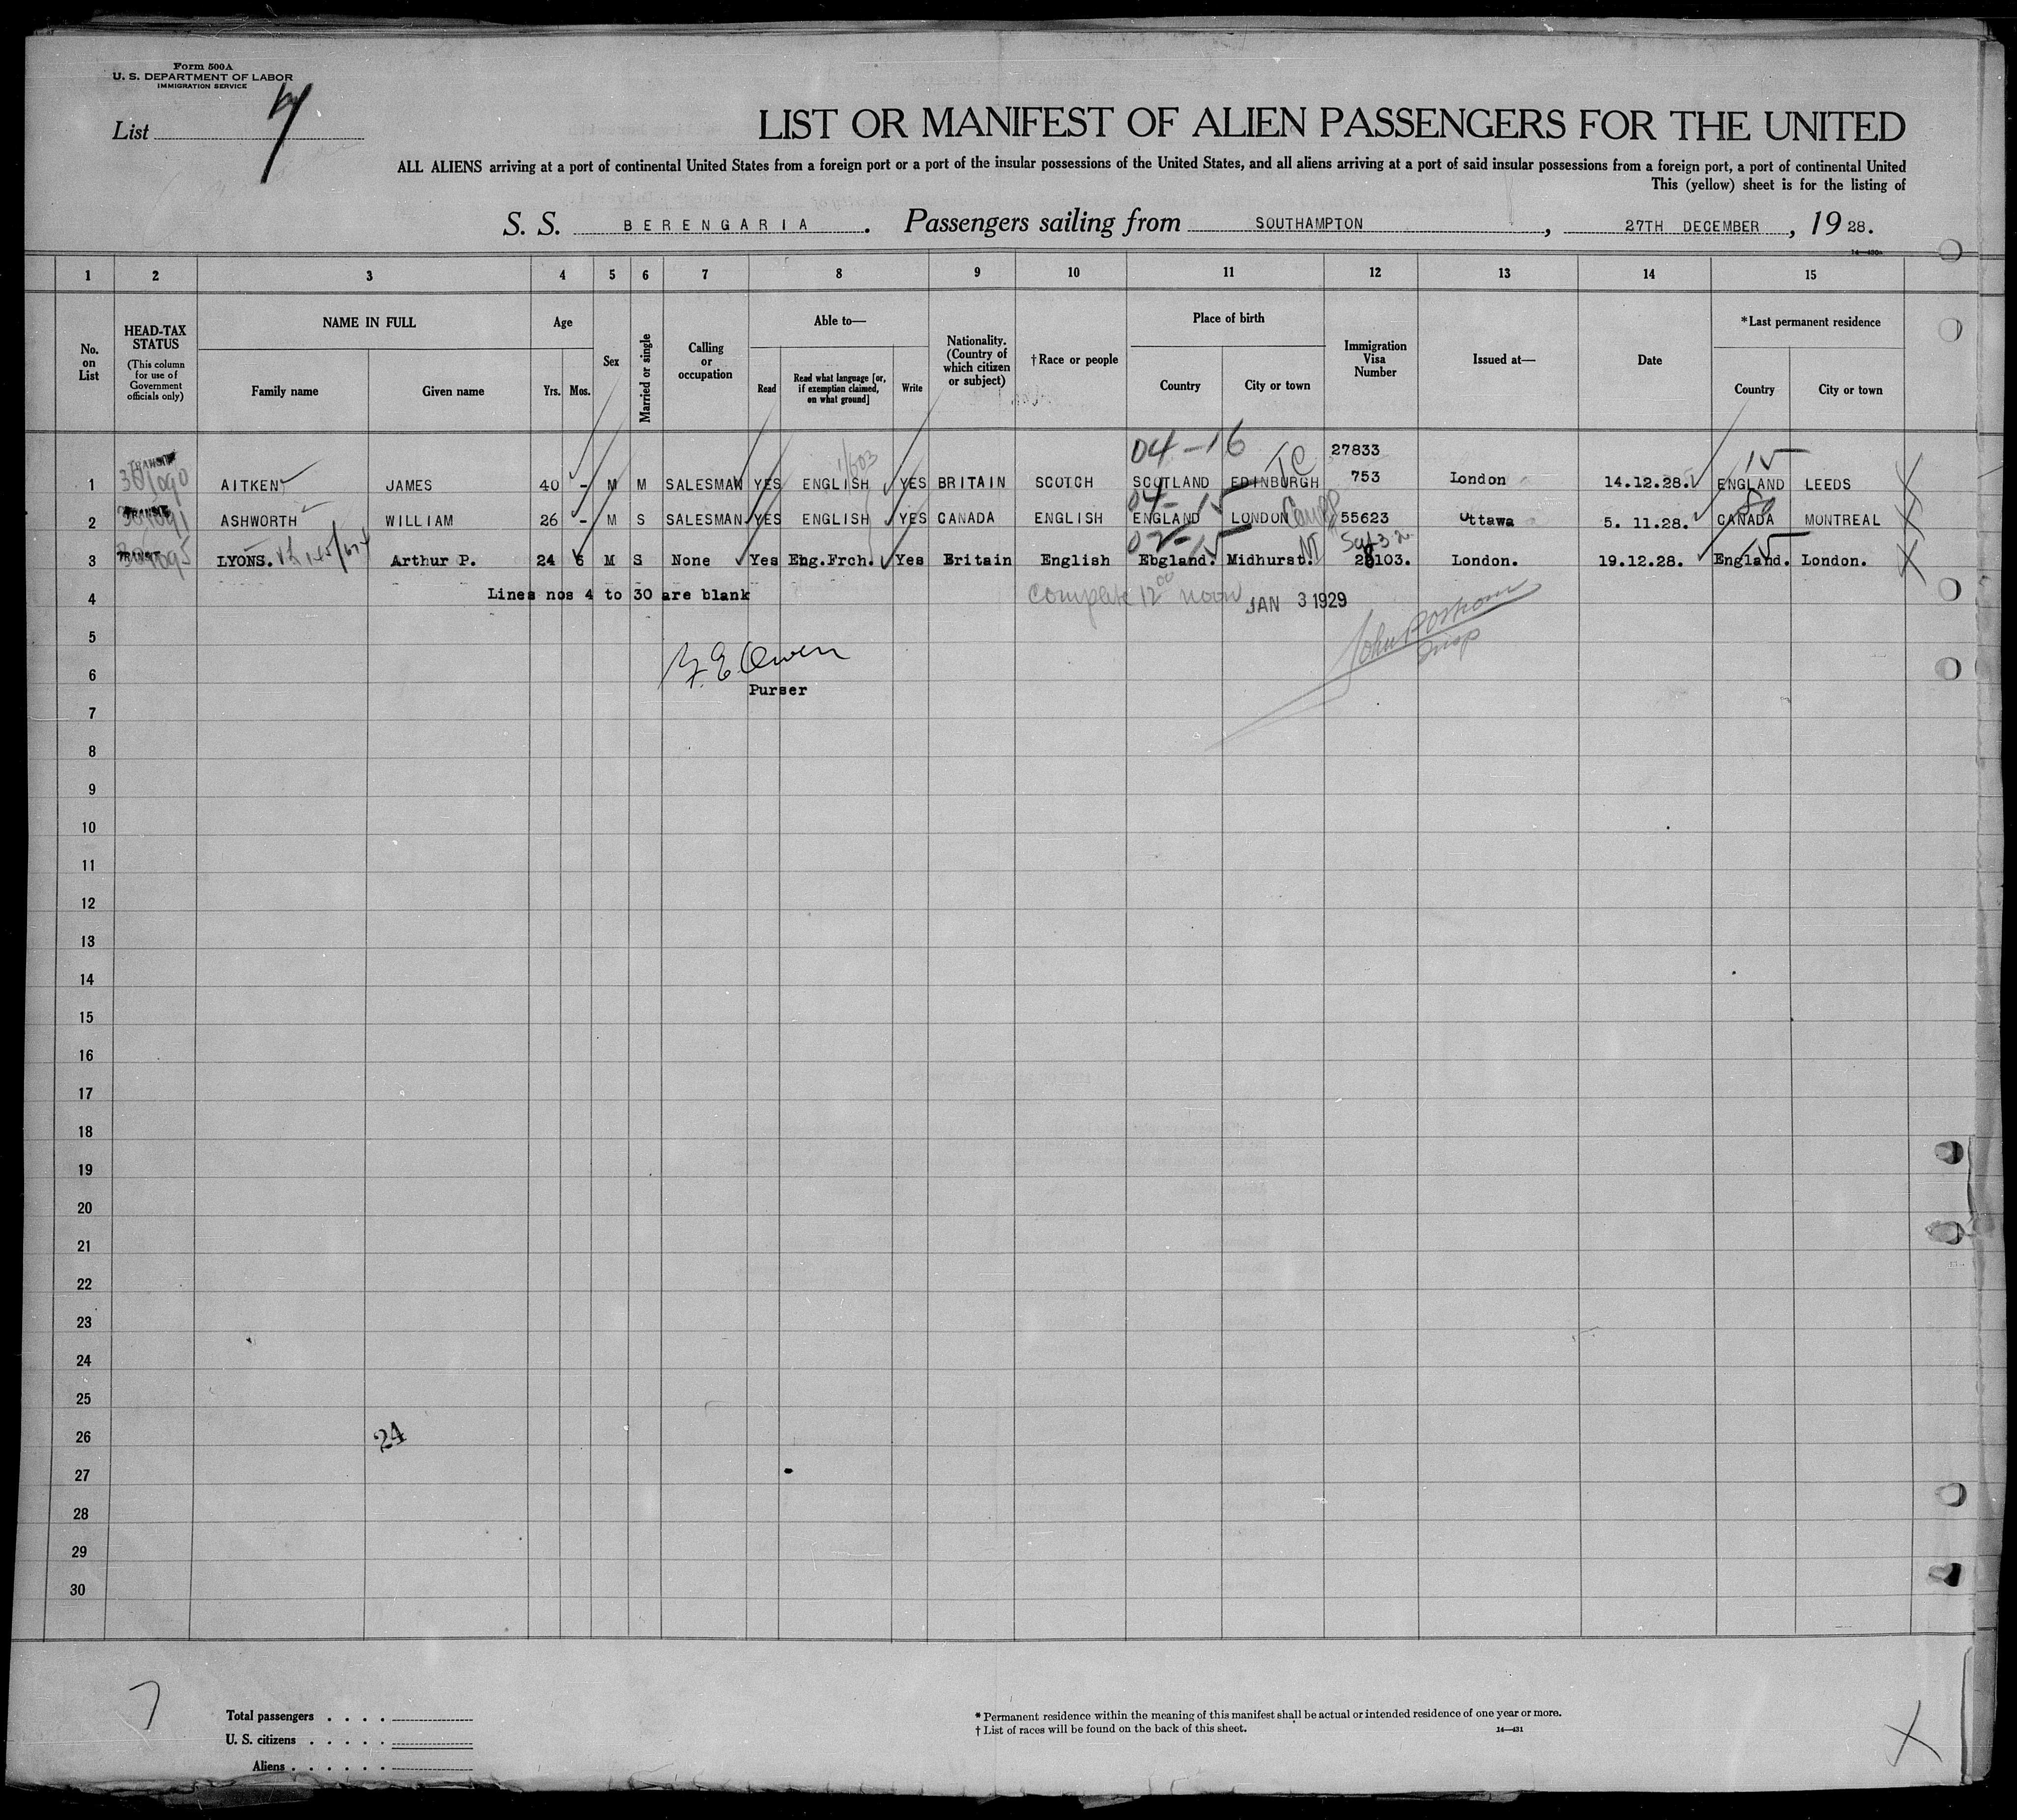 Form 500A
U. S. DEPARTMENT OF LABOR
IMMIGRATION SERVICE
List 7
LIST OR MANIFEST OF ALIEN PASSENGERS FOR THE UNITED
ALL ALIENS arriving at a port of continental United States from a foreign port or a port of the insular possessions of the United States, and all aliens arriving at a port of said insular possessions from a foreign port, a port of continental United
This (yellow) sheet is for the listing of
S. S. BERENGARIA. Passengers sailing from SOUTHAMPTON, 27TH DECEMBER, 1928.
14—430a
1 2 3 4 5 6 7 8 9 10 11 12 13 14 15
No. on List
HEAD-TAX STATUS
(This column for use of Government officials only)
NAME IN FULL
Family name Given name
Age
Yrs. Mos.
Sex
Married or single
Calling or occupation
Able to—
Read
Read what language [or, if exemption claimed, on what ground]
Write
Nationality. (Country of which citizen or subject)
†Race or people
Place of birth
Country City or town
Immigration Visa Number
Issued at—
Date
*Last permanent residence
Country City or town
04-16 27833
1 TRANSIT AITKEN JAMES 40 - M M SALESMAN YES ENGLISH YES BRITAIN SCOTCH SCOTLAND EDINBURGH 753 London 14.12.28. ENGLAND LEEDS
2 TRANSIT ASHWORTH WILLIAM 26 - M S SALESMAN YES ENGLISH YES CANADA ENGLISH ENGLAND LONDON 55623 Ottawa 5. 11.28. CANADA MONTREAL
3 TRANSIT LYONS. Arthur P. 24 6 M S None Yes Eng.Frch. Yes Britain English England. Midhurst. 28103. London. 19.12.28. England. London.
4 Lines nos 4 to 30 are blank complete 12 00 noon JAN 3 1929
5
6
Purser
7
8
9
10
11
12
13
14
15
16
17
18
19
20
21
22
23
24
25
26
24
27
28
29
30
7
Total passengers . . . .
U. S. citizens . . . . .
Aliens . . . . . .
* Permanent residence within the meaning of this manifest shall be actual or intended residence of one year or more.
† List of races will be found on the back of this sheet.
14—431
X